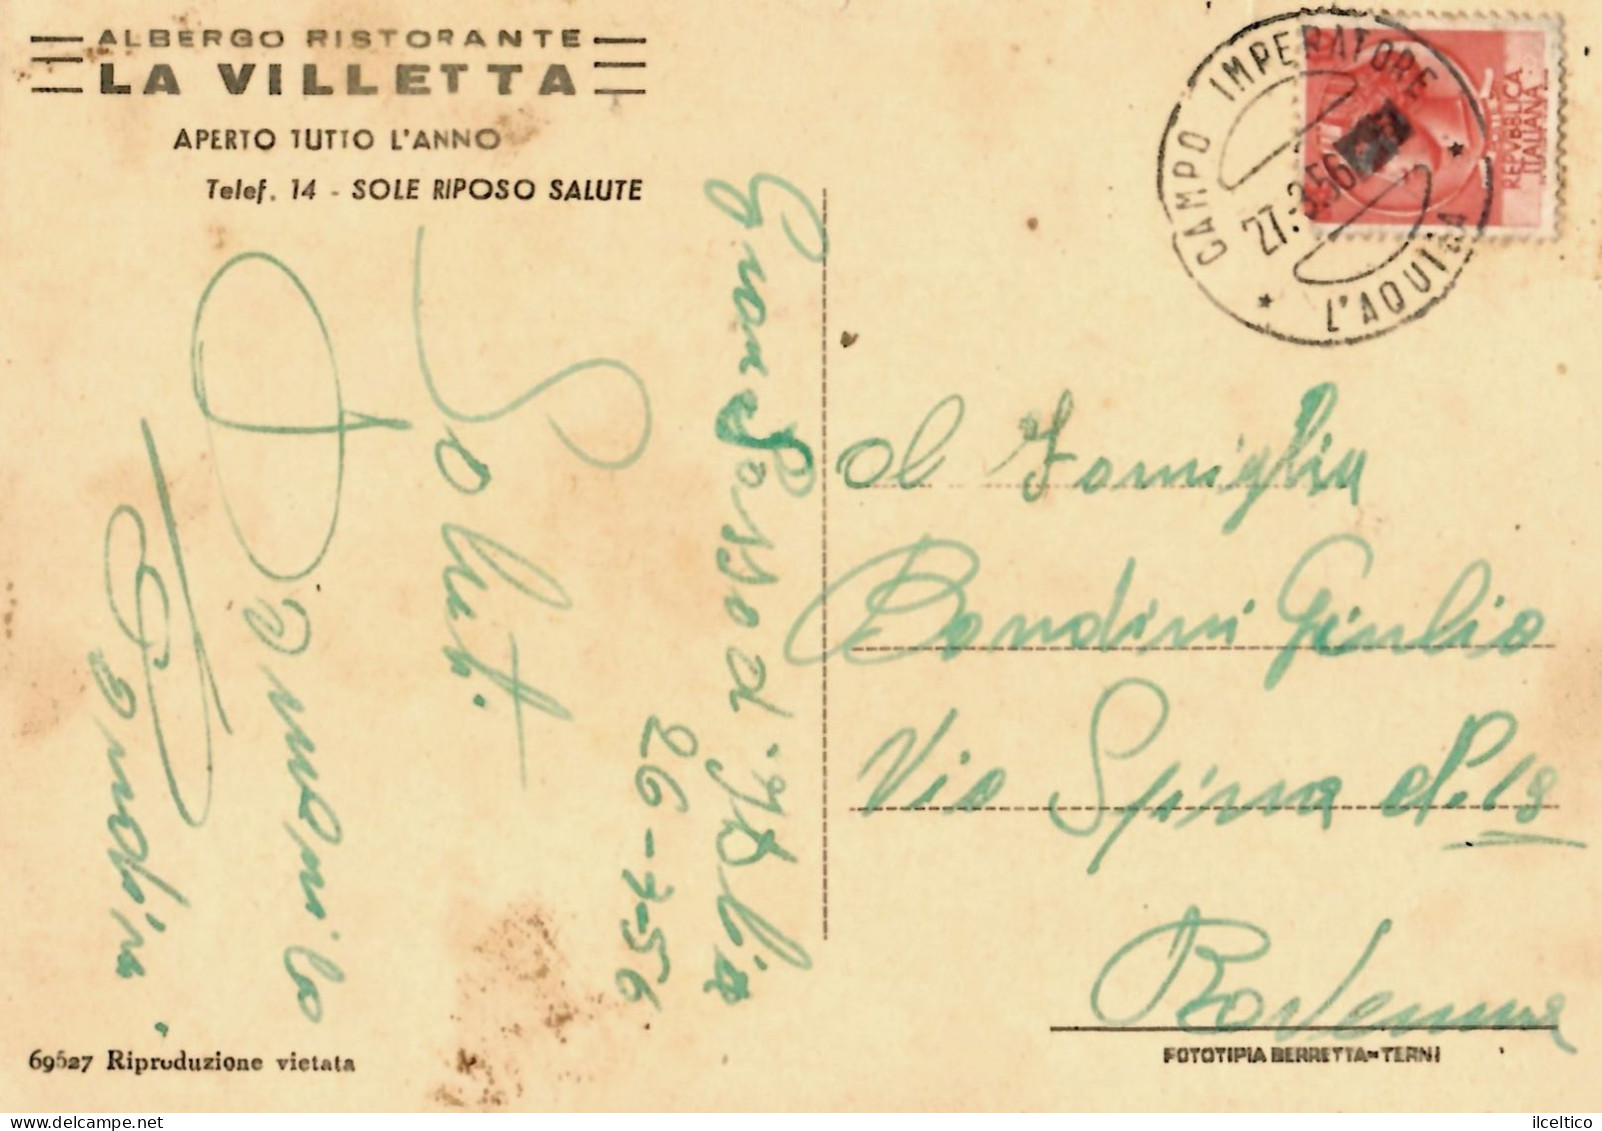 ALBERGO RISTORANTE
LA VILLETTA
APERTO TUTTO L'ANNO
Telef. 14 - SOLE RIPOSO SALUTE
CAMPO IMPERATORE
27.3.56
L'AQUILA
REPVBBLICA
ITALIANA
Gran Sasso d'Italia
26-3-56
Saluti
Bandini
Al Famiglia
Bandini Giulio
Via Spina N. 18
Ravenna
69527 Riproduzione vietata
FOTOTIPIA BERRETTA - TERNI
ilceltico